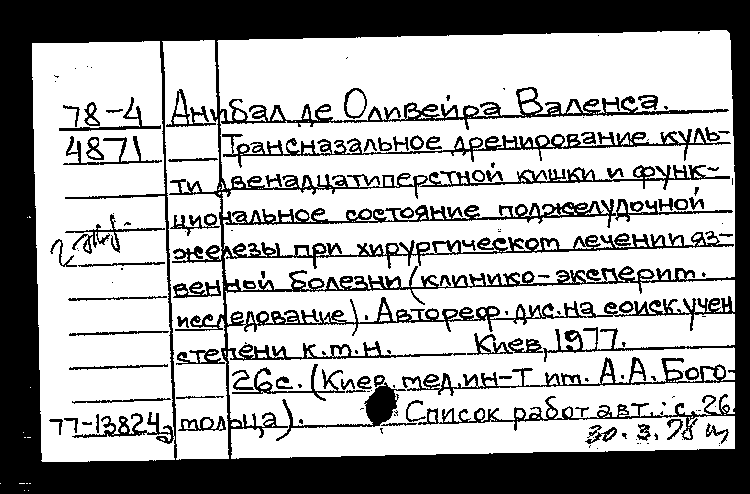 78-4 Анибал де Оливейра Валенса.
4871 Трансназальное дренирование куль-
ти двенадцатиперстной кишки и функ-
циональное состояние поджелудочной
2 экз.
железы при хирургическом лечении яз-
венной болезни (клинико-эксперим.
исследование). Автореф. дис. на соиск. учен
степени к.м.н. Киев, 1977.
26с. (Киев. мед. ин-т им. А.А. Бого-
77-13824 мольца). Список работ авт.: с. 26.
30.3.78